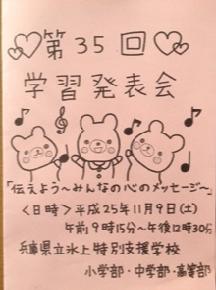 第35回
学習発表会
「伝えよう〜みんなの心のメッセージ〜」
<日時>平成25年11月9日(土)
午前9時15分〜午後12時30分
兵庫県立氷上特別支援学校
小学部・中学部・高等部